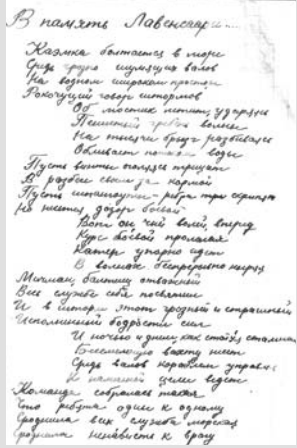 В память Лавенсаари....
Казмка болтается в море
Средь грозно шумящих валов
На водном широком просторе
Рокочущий говор штормов
Об мостик летит, ударяясь
Пенистый гребень волны
На тысячи брызг разбиваясь
Обливает потоком воды
Пусть винты полундра трещат
В разбое свежа за кормой
Пусть шпангоуты - ребра трюм скрипят
Но несется дозор боевой
Вот он чей волей, вперед
Курс боевой пролагая
Катер упорно идет
В волнах беспрерывно ныряя
Мичман, балтиец отважный
Всю службе себя посвятивший
И в шторм этот грозный и страшный
Исполненный бодрости сил
И ночью и днем, как стойкий, стальной
Бессменную вахту несет
Средь валов кораблем управляя
К намеченной цели ведет
Команда собралась такая
Что ребята один к одному
Сроднила всех служба морская
Сроднила ненависть к врагу